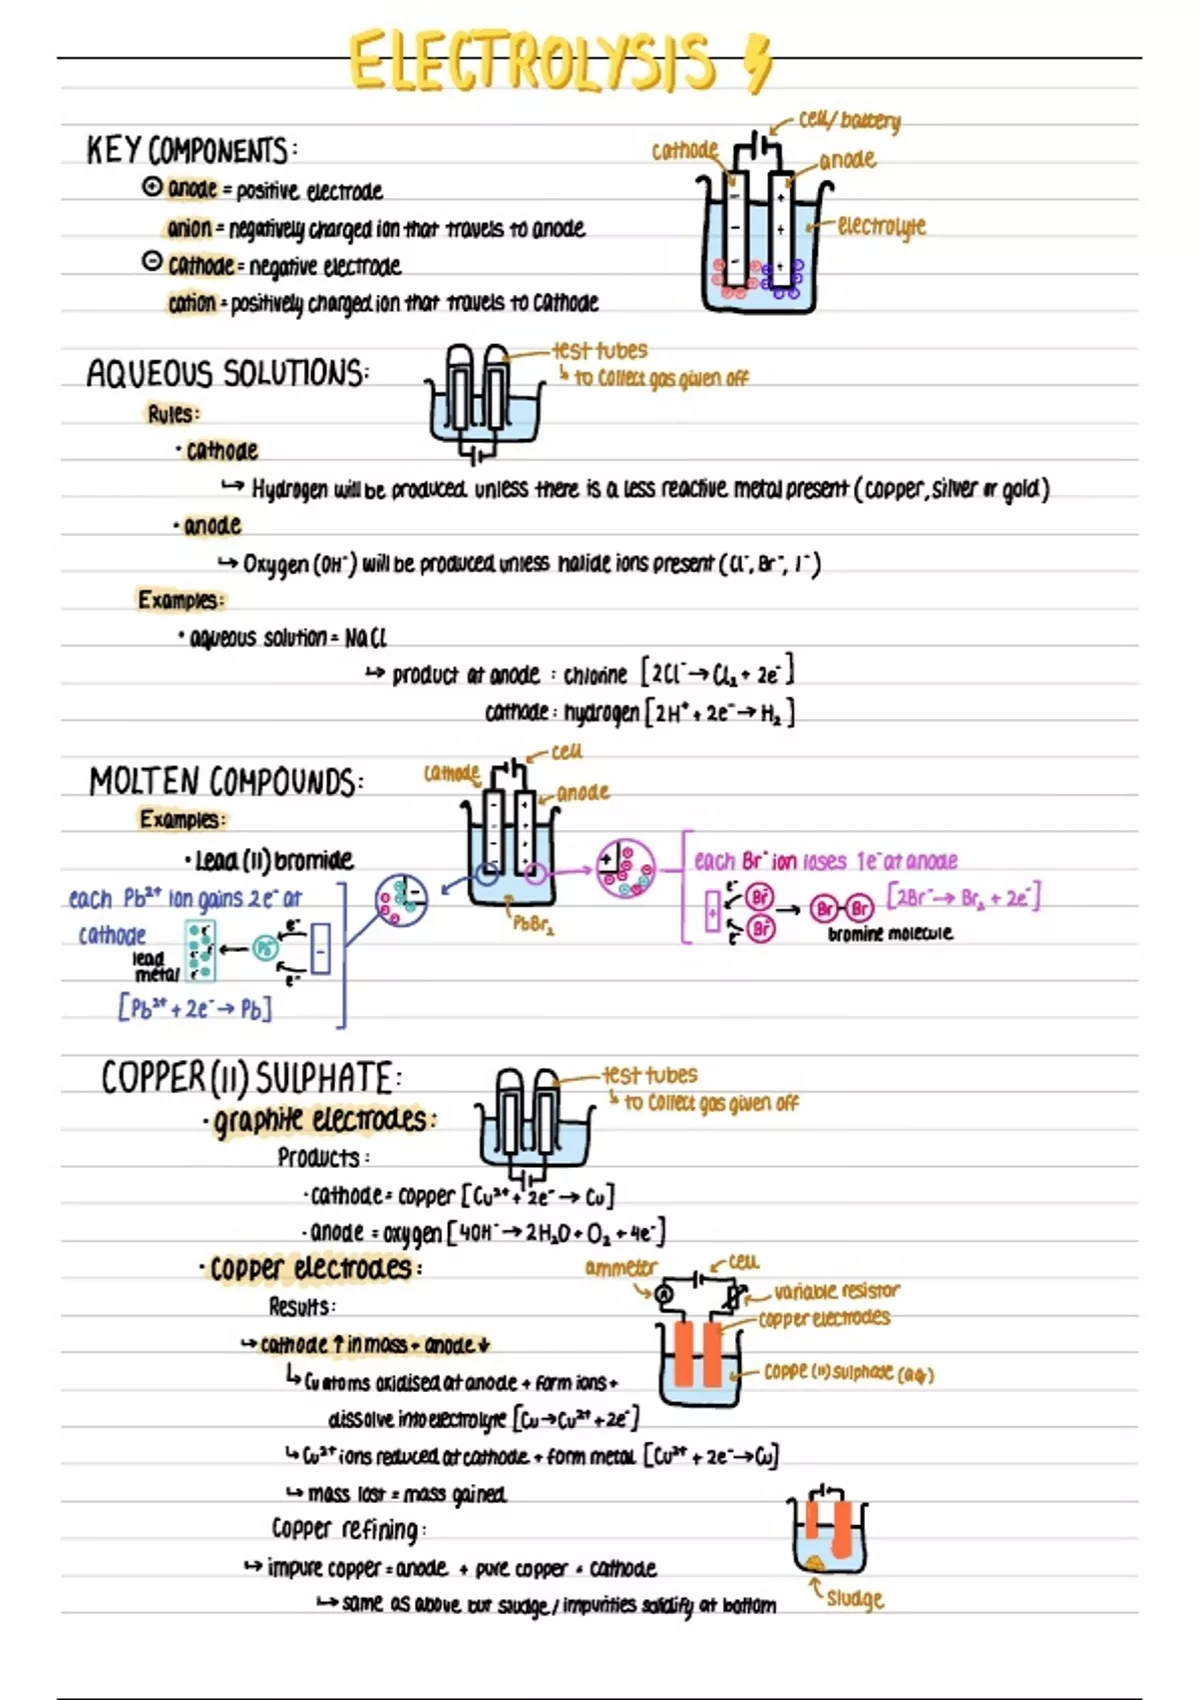 ELECTROLYSIS
KEY COMPONENTS:
cell/battery
cathode
anode
electrolyte
⊕ anode = positive electrode
anion = negatively charged ion that travels to anode
⊖ cathode = negative electrode
cation = positively charged ion that travels to cathode
AQUEOUS SOLUTIONS:
test tubes
↳ to collect gas given off
Rules:
· cathode
↳ Hydrogen will be produced unless there is a less reactive metal present (copper, silver or gold)
· anode
↳ Oxygen (OH⁻) will be produced unless halide ions present (Cl⁻, Br⁻, I⁻)
Examples:
· aqueous solution = NaCl
↳ product at anode : chlorine [2Cl⁻ → Cl₂ + 2e⁻]
cathode : hydrogen [2H⁺ + 2e⁻ → H₂]
MOLTEN COMPOUNDS:
cell
cathode
anode
PbBr₂
Examples:
· Lead (II) bromide
each Pb²⁺ ion gains 2e⁻ at
cathode
lead
metal
Pb
e⁻
e⁻
[Pb²⁺ + 2e⁻ → Pb]
each Br⁻ ion loses 1e⁻ at anode
e⁻ Br⁻
e⁻ Br⁻
Br-Br
[2Br⁻ → Br₂ + 2e⁻]
bromine molecule
COPPER (II) SULPHATE:
test tubes
↳ to collect gas given off
· graphite electrodes:
Products:
· cathode = copper [Cu²⁺ + 2e⁻ → Cu]
· anode = oxygen [4OH⁻ → 2H₂O + O₂ + 4e⁻]
· Copper electrodes:
ammeter
A
cell
variable resistor
copper electrodes
coppe (II) sulphate (aq)
Results:
↳ cathode ↑ in mass + anode ↓
↳ Cu atoms oxidised at anode + form ions +
dissolve into electrolyte [Cu → Cu²⁺ + 2e⁻]
↳ Cu²⁺ ions reduced at cathode + form metal [Cu²⁺ + 2e⁻ → Cu]
↳ mass lost = mass gained
Copper refining:
↳ impure copper = anode + pure copper = cathode
↳ same as above but sludge/impurities solidify at bottom
sludge